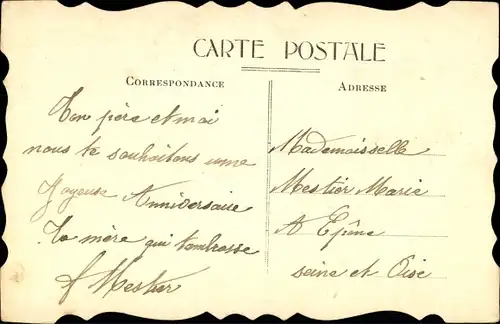 CARTE POSTALE
CORRESPONDANCE
Ton père et moi
nous te souhaitons une
Joyeuse Anniversaire
Ta mère qui t'embrasse
ADRESSE
Mademoisselle
Mestier Marie
A Epône
seine et Oise